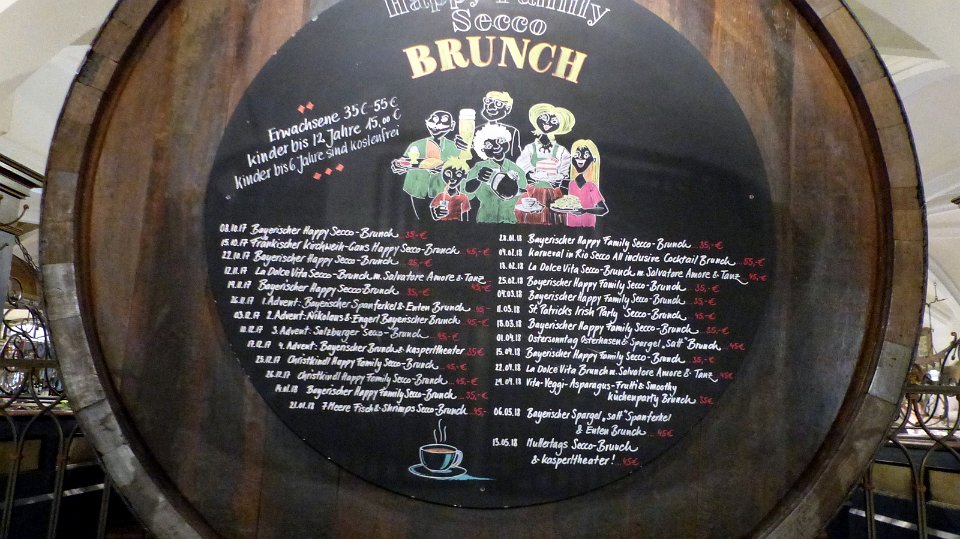 Happy Family
Secco
BRUNCH
Erwachsene 35€-55€
kinder bis 12 Jahre 15,00€
kinder bis 6 Jahre sind kostenfrei
08.10.17 Bayerischer Happy Secco-Brunch 35,-€
15.10.17 Fränkischer Kirchweih-Gans Happy Secco-Brunch 45,-€
22.10.17 Bayerischer Happy Secco-Brunch 35,-€
12.11.17 La Dolce Vita Secco-Brunch m. Salvatore Amore & Tanz 45,-€
19.11.17 Bayerischer Happy Secco Brunch 35,-€
26.11.17 1. Advent: Bayerischer Spanferkel & Enten Brunch 45,-
03.12.17 2. Advent: Nikolaus & Engerl Bayerischer Brunch 45,-€
10.12.17 3. Advent: Salzburger Secco-Brunch 45,-€
17.12.17 4. Advent: Bayerischer Brunch & Kasperltheater 35€
25.12.17 Christkindl Happy Family Secco-Brunch 45,-€
26.12.17 Christkindl Happy Family Secco-Brunch 45,-€
14.01.18 Bayerischer Happy Family Secco-Brunch 35,-€
21.01.18 7 Meere Fisch & Shrimps Secco-Brunch 45,-
28.01.18 Bayerischer Happy Family Secco-Brunch 35,-€
Karneval in Rio Secco All inclusive Cocktail Brunch 55,-€
18.02.18 La Dolce Vita Secco-Brunch m. Salvatore Amore & Tanz 45,-
25.02.18 Bayerischer Happy Family Secco-Brunch 35,-€
04.03.18 Bayerischer Happy Family Secco-Brunch 35,-€
11.03.18 St Patrick's Irish Party Secco-Brunch 45,-€
18.03.18 Bayerischer Happy Family Secco-Brunch 35,-€
01.04.18 Ostersonntag Osterhasen & Spargel „satt" Brunch 45€
15.04.18 Bayerischer Happy Family Secco-Brunch 35,-€
22.04.18 La Dolce Vita Brunch m. Salvatore Amore & Tanz 45€
29.04.18 Vita-Veggi-Asparagus-Frutti & Smoothy
küchenparty Brunch 35€
06.05.18 Bayerischer Spargel „satt" Spanferkel
& Enten Brunch ... 45€
13.05.18 Muttertags Secco-Brunch
& Kasperltheater! ... 45€